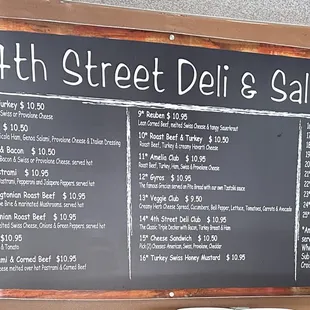 4th Street Deli & Sal
Turkey $ 10.50
Swiss or Provolone Cheese
$ 10.50
Ham, Genoa Salami, Provolone Cheese & Italian Dressing
& Bacon $ 10.50
Bacon & Swiss or Provolone Cheese, served hot
$ 10.95
Pastrami, Pepperoni and Jalapeno Peppers, served hot
Roast Beef $ 10.95
Brie & marinated Mushrooms, served hot
Roast Beef $ 10.95
melted Swiss Cheese, Onions & Green Peppers, served hot
$ 10.95
& Tomato
& Corned Beef $ 10.95
Cheese melted over hot Pastrami & Corned Beef
9* Reuben $ 10.95
Lean Corned Beef, melted Swiss Cheese & tangy Sauerkraut
10* Roast Beef & Turkey $ 10.50
Roast Beef, Turkey & creamy Havarti Cheese
11* Amelia Club $ 10.95
Roast Beef, Turkey, Ham, Swiss & Provolone Cheese
12* Gyros $ 10.95
The famous Grecian served on Pita Bread with our own Tzatziki sauce
13* Veggie Club $ 9.50
Creamy Herb Cheese Spread, Cucumbers, Bell Pepper, Lettuce, Tomatoes, Carrots & Avocado
14* 4th Street Deli Club $ 10.95
The Classic Triple Decker with Bacon, Turkey Breast & Ham
15* Cheese Sandwich $ 10.50
Pick (2) Cheeses: American, Swiss, Provolone, Cheddar
16* Turkey Swiss Honey Mustard $ 10.95